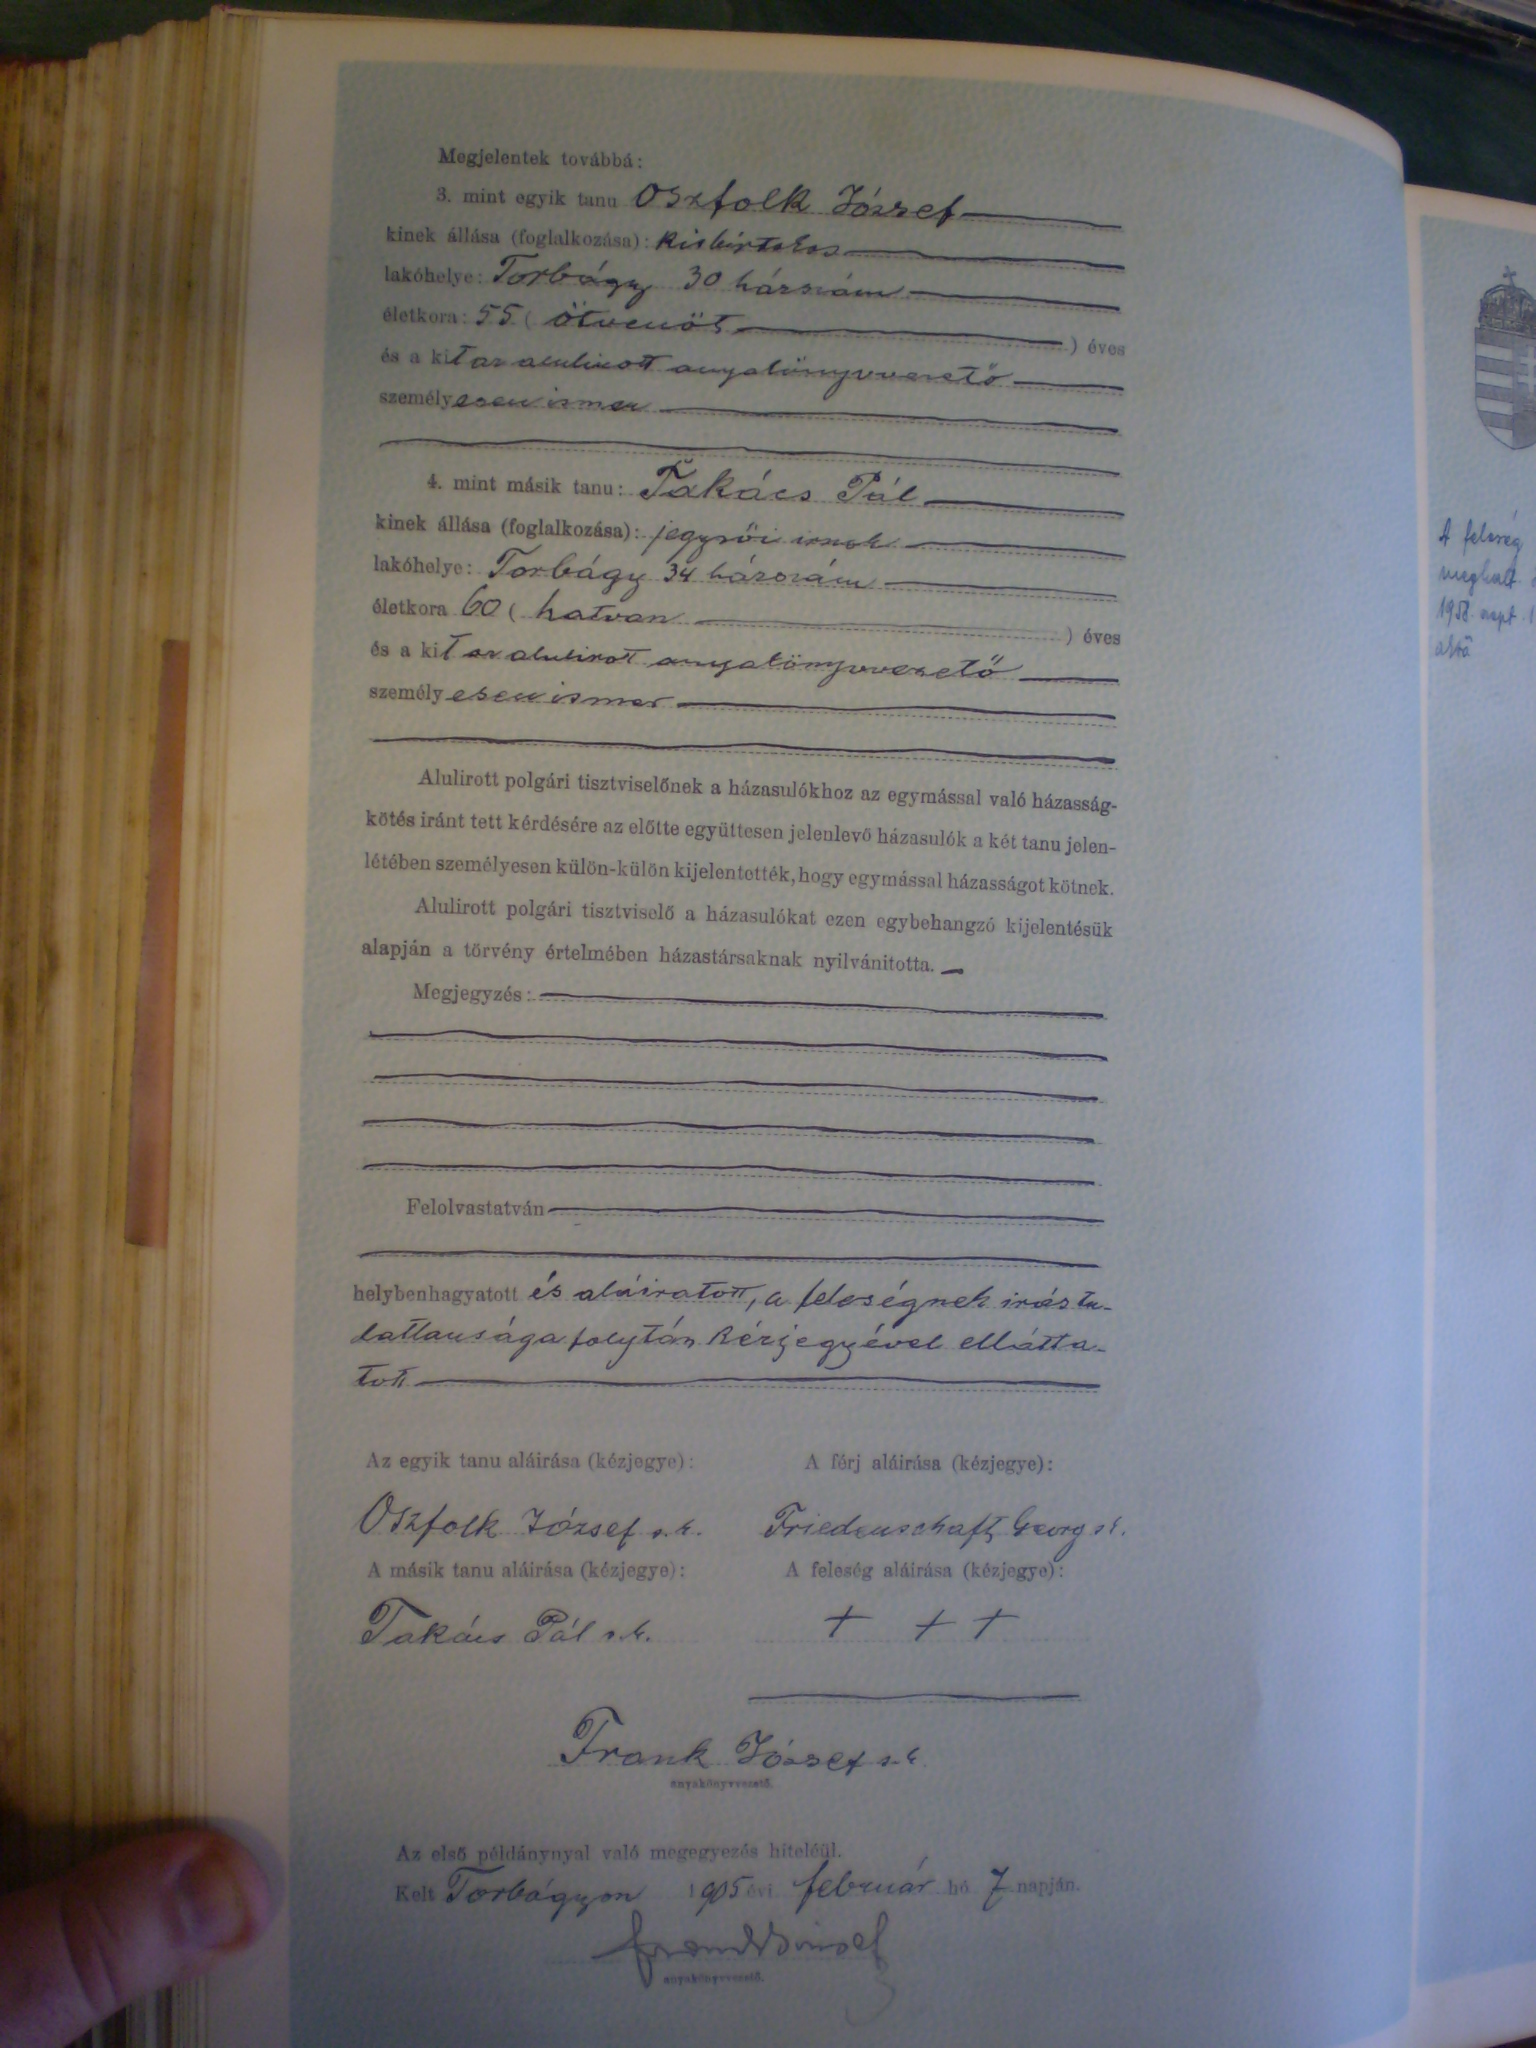 Megjelentek továbbá:
3. mint egyik tanu Oszfolk József
kinek állása (foglalkozása): kisbirtokos
lakóhelye: Torbágy 30 házszám
életkora: 55 ( ötvenöt ) éves
és a kit az alulirott anyakönyvvezető
személyesen ismer
4. mint másik tanu: Takács Pál
kinek állása (foglalkozása): jegyzői irnok
lakóhelye: Torbágy 34 házszám
életkora 60 ( hatvan ) éves
és a kit az alulirott anyakönyvvezető
személyesen ismer
Alulirott polgári tisztviselőnek a házasulókhoz az egymással való házasság-
kötés iránt tett kérdésére az előtte együttesen jelenlevő házasulók a két tanu jelen-
létében személyesen külön-külön kijelentették, hogy egymással házasságot kötnek.
Alulirott polgári tisztviselő a házasulókat ezen egybehangzó kijelentésük
alapján a törvény értelmében házastársaknak nyilvánitotta.
Megjegyzés:
Felolvastatván
helybenhagyatott és aláiratott, a feleségnek irástu-
datlansága folytán kézjegyével ellátta-
tott
Az egyik tanu aláirása (kézjegye): A férj aláirása (kézjegye):
Oszfolk József s. k. Friedenschaft Georg sk.
A másik tanu aláirása (kézjegye): A feleség aláirása (kézjegye):
Takács Pál s. k. + + +
Frank József s. k.
anyakönyvvezető.
Az első példánynyal való megegyezés hiteléül.
Kelt Torbágyon 1905 évi február hó 7 napján.
Frank József
anyakönyvvezető.
A feleség
meghalt
1958. szept. 1